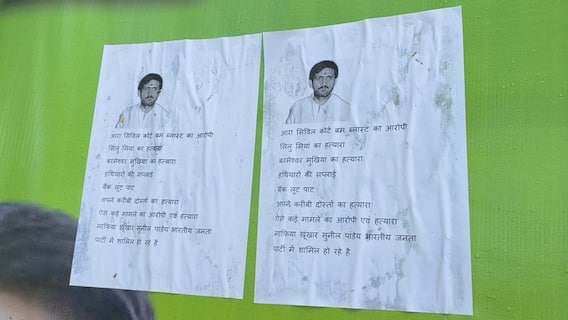 आरा सिविल कोर्ट बम ब्लास्ट का आरोपी
सिलु मियां का हत्यारा
बरमेश्वर मुखिया का हत्यारा
हथियारों की सप्लाई
बैंक लूट पाट
अपने करीबी दोस्तों का हत्यारा
ऐसे कई मामले का आरोपी एवं हत्यारा
माफिया खूंखार सुनील पाडेय भारतीय जनता
पार्टी में शामिल हो रहे है
आरा सिविल कोर्ट बम ब्लास्ट का आरोपी
सिलु मियां का हत्यारा
बरमेश्वर मुखिया का हत्यारा
हथियारों की सप्लाई
बैंक लूट पाट
अपने करीबी दोस्तों का हत्यारा
ऐसे कई मामले का आरोपी एवं हत्यारा
माफिया खूंखार सुनील पाडेय भारतीय जनता
पार्टी में शामिल हो रहे है